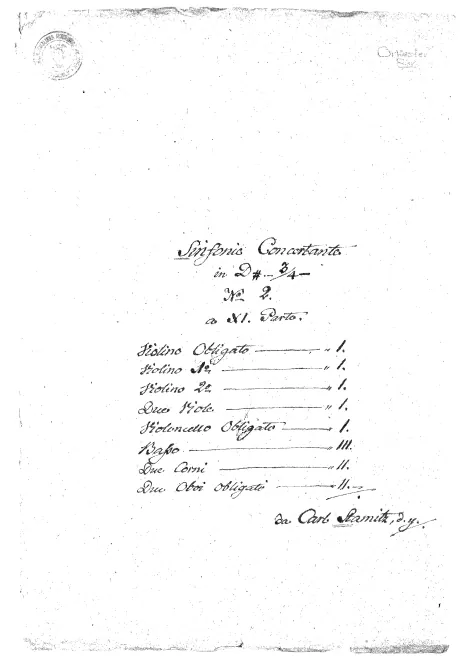 Sinfonie Concertante
in D# - 3/4 -
No 2.
a XI. Parte.
Violino Obligato — " 1.
Violino 1mo — " 1.
Violino 2do — " 1.
Due Viole — " 1.
Violoncello Obligato — " 1.
Baſso — " III.
Due Corni — " II.
Due Oboi obligati — " II.
da Carl Stamitz, d. y.